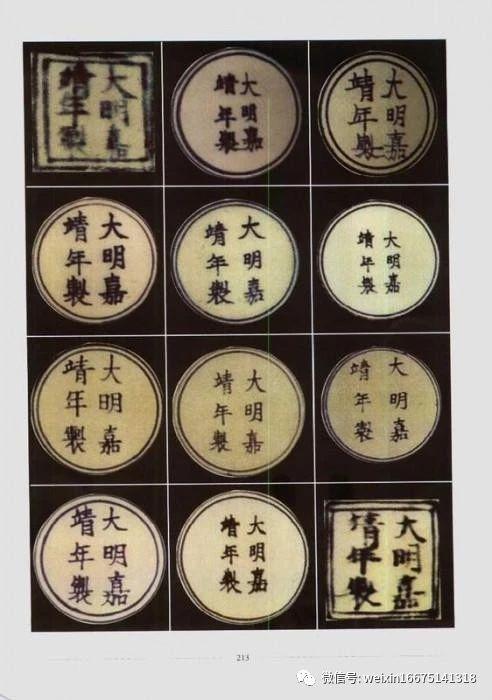 大明嘉
靖年製
大明嘉
靖年製
大明嘉
靖年製
大明嘉
靖年製
大明嘉
靖年製
大明嘉
靖年製
大明嘉
靖年製
大明嘉
靖年製
大明嘉
靖年製
大明嘉
靖年製
大明嘉
靖年製
大明嘉
靖年製
213
微信号: weixin16675141318